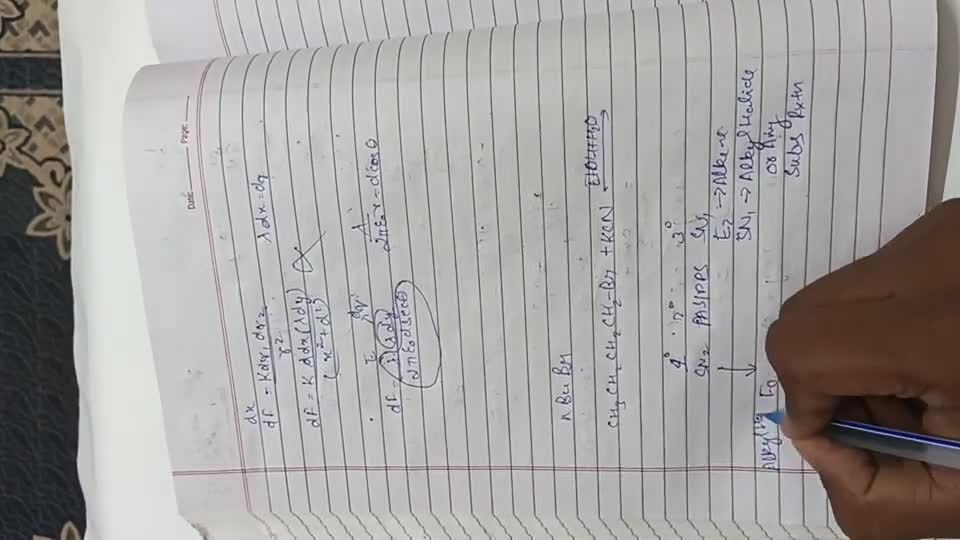 Date: Page:
dx
dF = K dq1 dq2 / r² λdx = dq
dF = K λdx(λdy) / (x²+d²)
dF = λ(λdy) / 2πε₀dsecθ λ / 2πε₀ r=dcosθ
n BuBr
CH3 CH2 CH2 CH2-Br + KCN EtOH+H2O →
1° 2° 3°
SN2 SN1
E2 → Alkene
SN1 → Alkyl Halide
or Any
Subs Rxtn